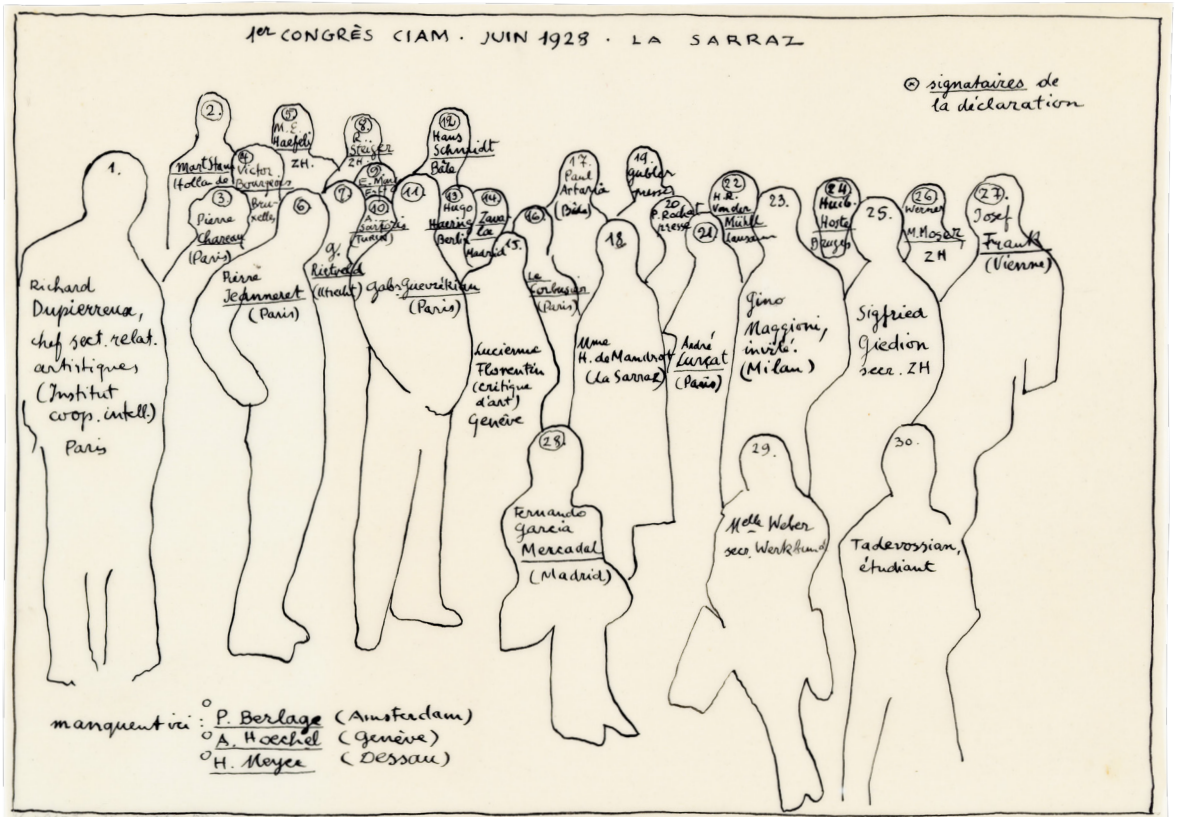 1er CONGRÈS CIAM · JUIN 1928 · LA SARRAZ
signataires de
la déclaration
1.
Richard
Dupierreux,
chef sect. relat.
artistiques
(Institut
coop. intell.)
Paris
2.
Mart Stam
(Hollande
3
Pierre
Chareau
(Paris)
4
Victor
Bourgeois
Bru-
xelles
5
M. E.
Haefeli
ZH.
6.
Pierre
Jeanneret
(Paris)
7
g.
Rietveld
(Utrecht)
8.
R.
Steiger
ZH
9
E. May
Fft
10
A.
Sartoris
TURIN
11
Gabr. Guevrékian
(Paris)
12
Hans
Schmidt
Bâle
13
Hugo
Haering
Berlin
14.
Zava-
la
Madrid
15.
Lucienne
Florentin
(critique
d'art)
Genève
16.
Le
Corbusier
(Paris)
17.
Paul
Artaria
(Bâle)
18.
Mme
H. de Mandrot
(La Sarraz)
19.
Gubler
presse
20
P. Rochat
presse
21
André
Lurçat
(Paris)
22
H.R.
Von der
Mühll
Lausann
23.
Gino
Maggioni,
invité.
(Milan)
24
Huib.
Hoste
Bruges
25.
Sigfried
Giedion
secr. ZH
26
Werner
M. Moser
ZH
27
Josef
Frank
(Vienne)
28
Fernando
Garcia
Mercadal
(Madrid)
29.
Melle Weber
secr. Werkbund
30.
Tadevossian,
étudiant
manquent ici : P. Berlage (Amsterdam)
A. Hoechel (Genève)
H. Meyer (Dessau)